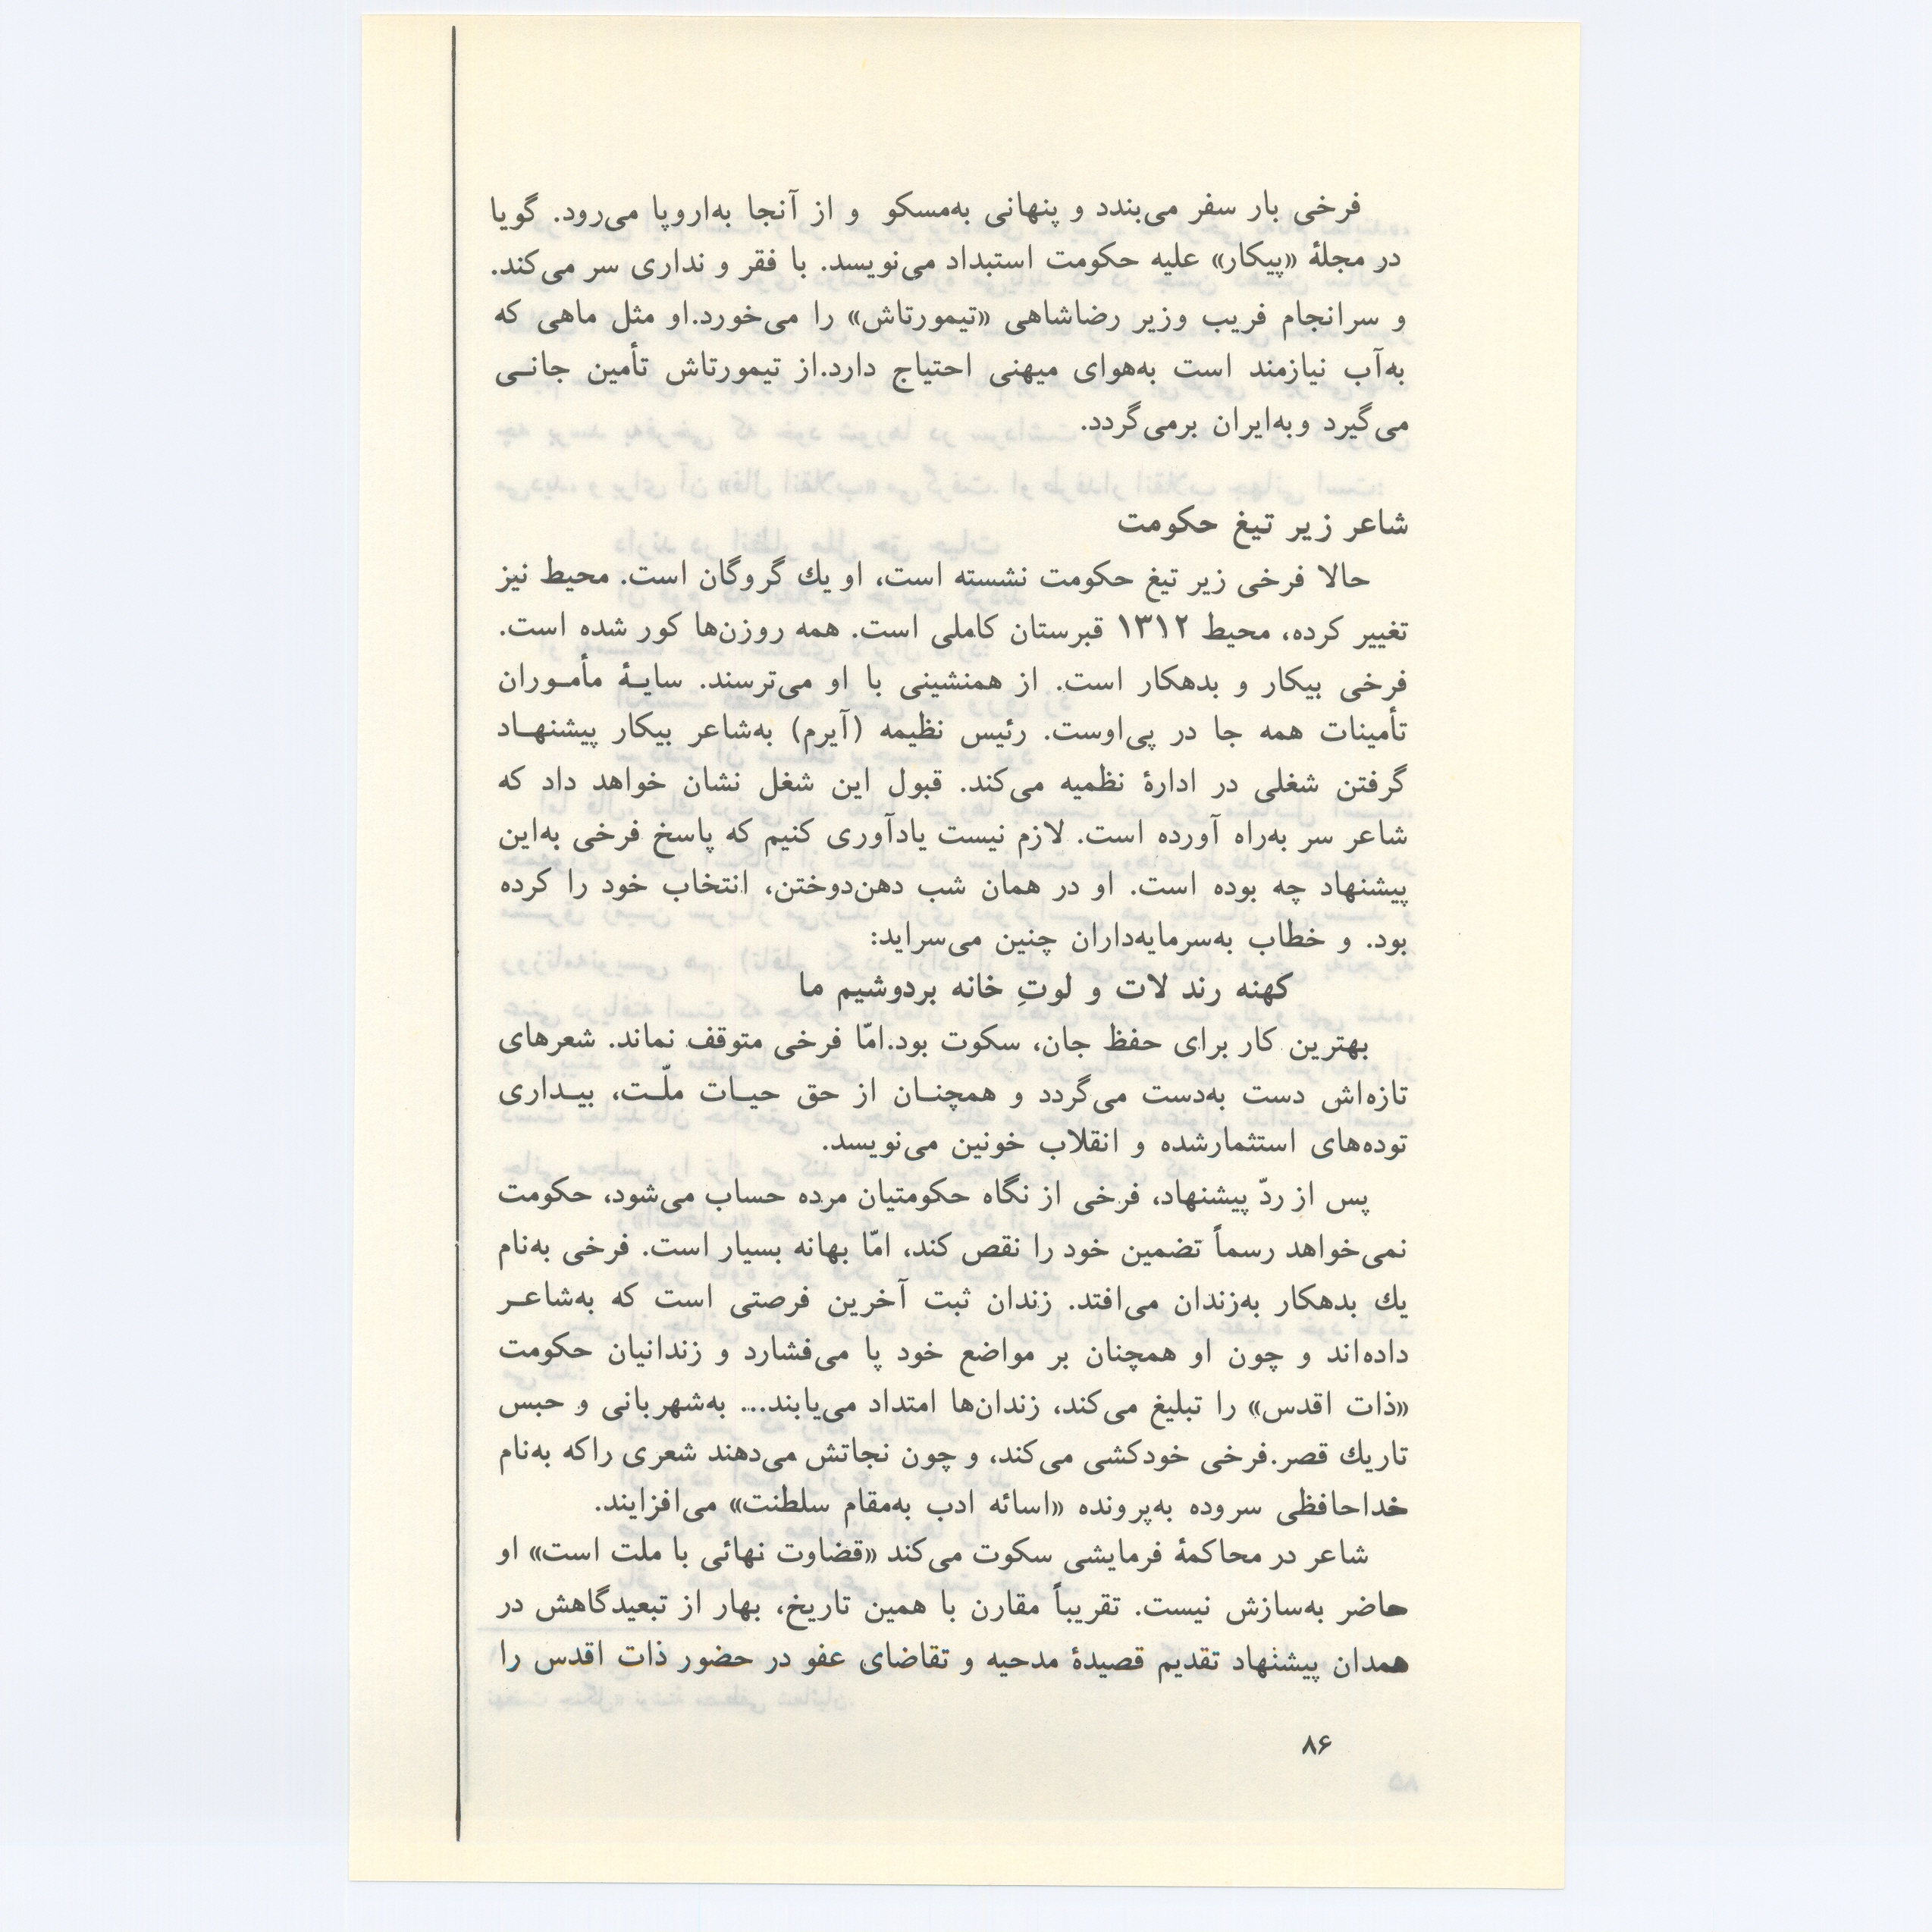 فرخی بار سفر می‌بندد و پنهانی به‌مسکو و از آنجا به‌اروپا می‌رود. گویا
در مجلهٔ «پیکار» علیه حکومت استبداد می‌نویسد. با فقر و نداری سر می‌کند.
و سرانجام فریب وزیر رضاشاهی «تیمورتاش» را می‌خورد.او مثل ماهی که
به‌آب نیازمند است به‌هوای میهنی احتیاج دارد.از تیمورتاش تأمین جانـی
می‌گیرد وبه‌ایران برمی‌گردد.
شاعر زیر تیغ حکومت
حالا فرخی زیر تیغ حکومت نشسته است، او یك گروگان است. محیط نیز
تغییر کرده، محیط ۱۳۱۲ قبرستان کاملی است. همه روزن‌ها کور شده است.
فرخی بیکار و بدهکار است. از همنشینی با او می‌ترسند. سایـهٔ مأمـوران
تأمینات همه جا در پی‌اوست. رئیس نظیمه (آیرم) به‌شاعر بیکار پیشنهـاد
گرفتن شغلی در ادارهٔ نظمیه می‌کند. قبول این شغل نشان خواهد داد که
شاعر سر به‌راه آورده است. لازم نیست یادآوری کنیم که پاسخ فرخی به‌این
پیشنهاد چه بوده است. او در همان شب دهن‌دوختن، انتخاب خود را کرده
بود. و خطاب به‌سرمایه‌داران چنین می‌سراید:
کهنه رند لات و لوتِ خانه بردوشیم ما
بهترین کار برای حفظ جان، سکوت بود.امّا فرخی متوقف نماند. شعرهای
تازه‌اش دست به‌دست می‌گردد و همچنـان از حق حیـات ملّـت، بیـداری
توده‌های استثمارشده و انقلاب خونین می‌نویسد.
پس از ردّ پیشنهاد، فرخی از نگاه حکومتیان مرده حساب می‌شود، حکومت
نمی‌خواهد رسماً تضمین خود را نقص کند، امّا بهانه بسیار است. فرخی به‌نام
یك بدهکار به‌زندان می‌افتد. زندان ثبت آخرین فرصتی است که به‌شاعـر
داده‌اند و چون او همچنان بر مواضع خود پا می‌فشارد و زندانیان حکومت
«ذات اقدس» را تبلیغ می‌کند، زندان‌ها امتداد می‌یابند... به‌شهربانی و حبس
تاریك قصر.فرخی خودکشی می‌کند، و چون نجاتش می‌دهند شعری راکه به‌نام
خداحافظی سروده به‌پرونده «اسائه ادب به‌مقام سلطنت» می‌افزایند.
شاعر در محاکمهٔ فرمایشی سکوت می‌کند «قضاوت نهائی با ملت است» او
حاضر به‌سازش نیست. تقریباً مقارن با همین تاریخ، بهار از تبعیدگاهش در
همدان پیشنهاد تقدیم قصیدهٔ مدحیه و تقاضای عفو در حضور ذات اقدس را
۸۶